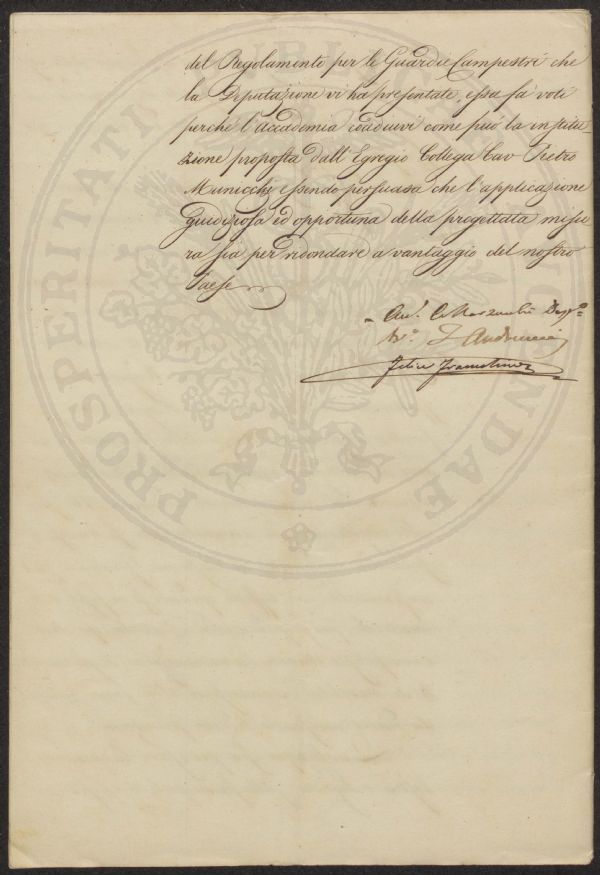 del Regolamento per le Guardie Campestri che
la Deputazione vi ha presentate, essa fa voti
perchè l'accademia coadiuvi come può la institu-
zione proposta dall'Egregio Collega Cav Pietro
Municchi essendo persuasa che l'applicazione
giudiziosa ed opportuna della progettata misu
ra sia per ridondare a vantaggio del nostro
Paese
Felice Francolini
PROSPERITATI PUBLICAE AUGENDAE